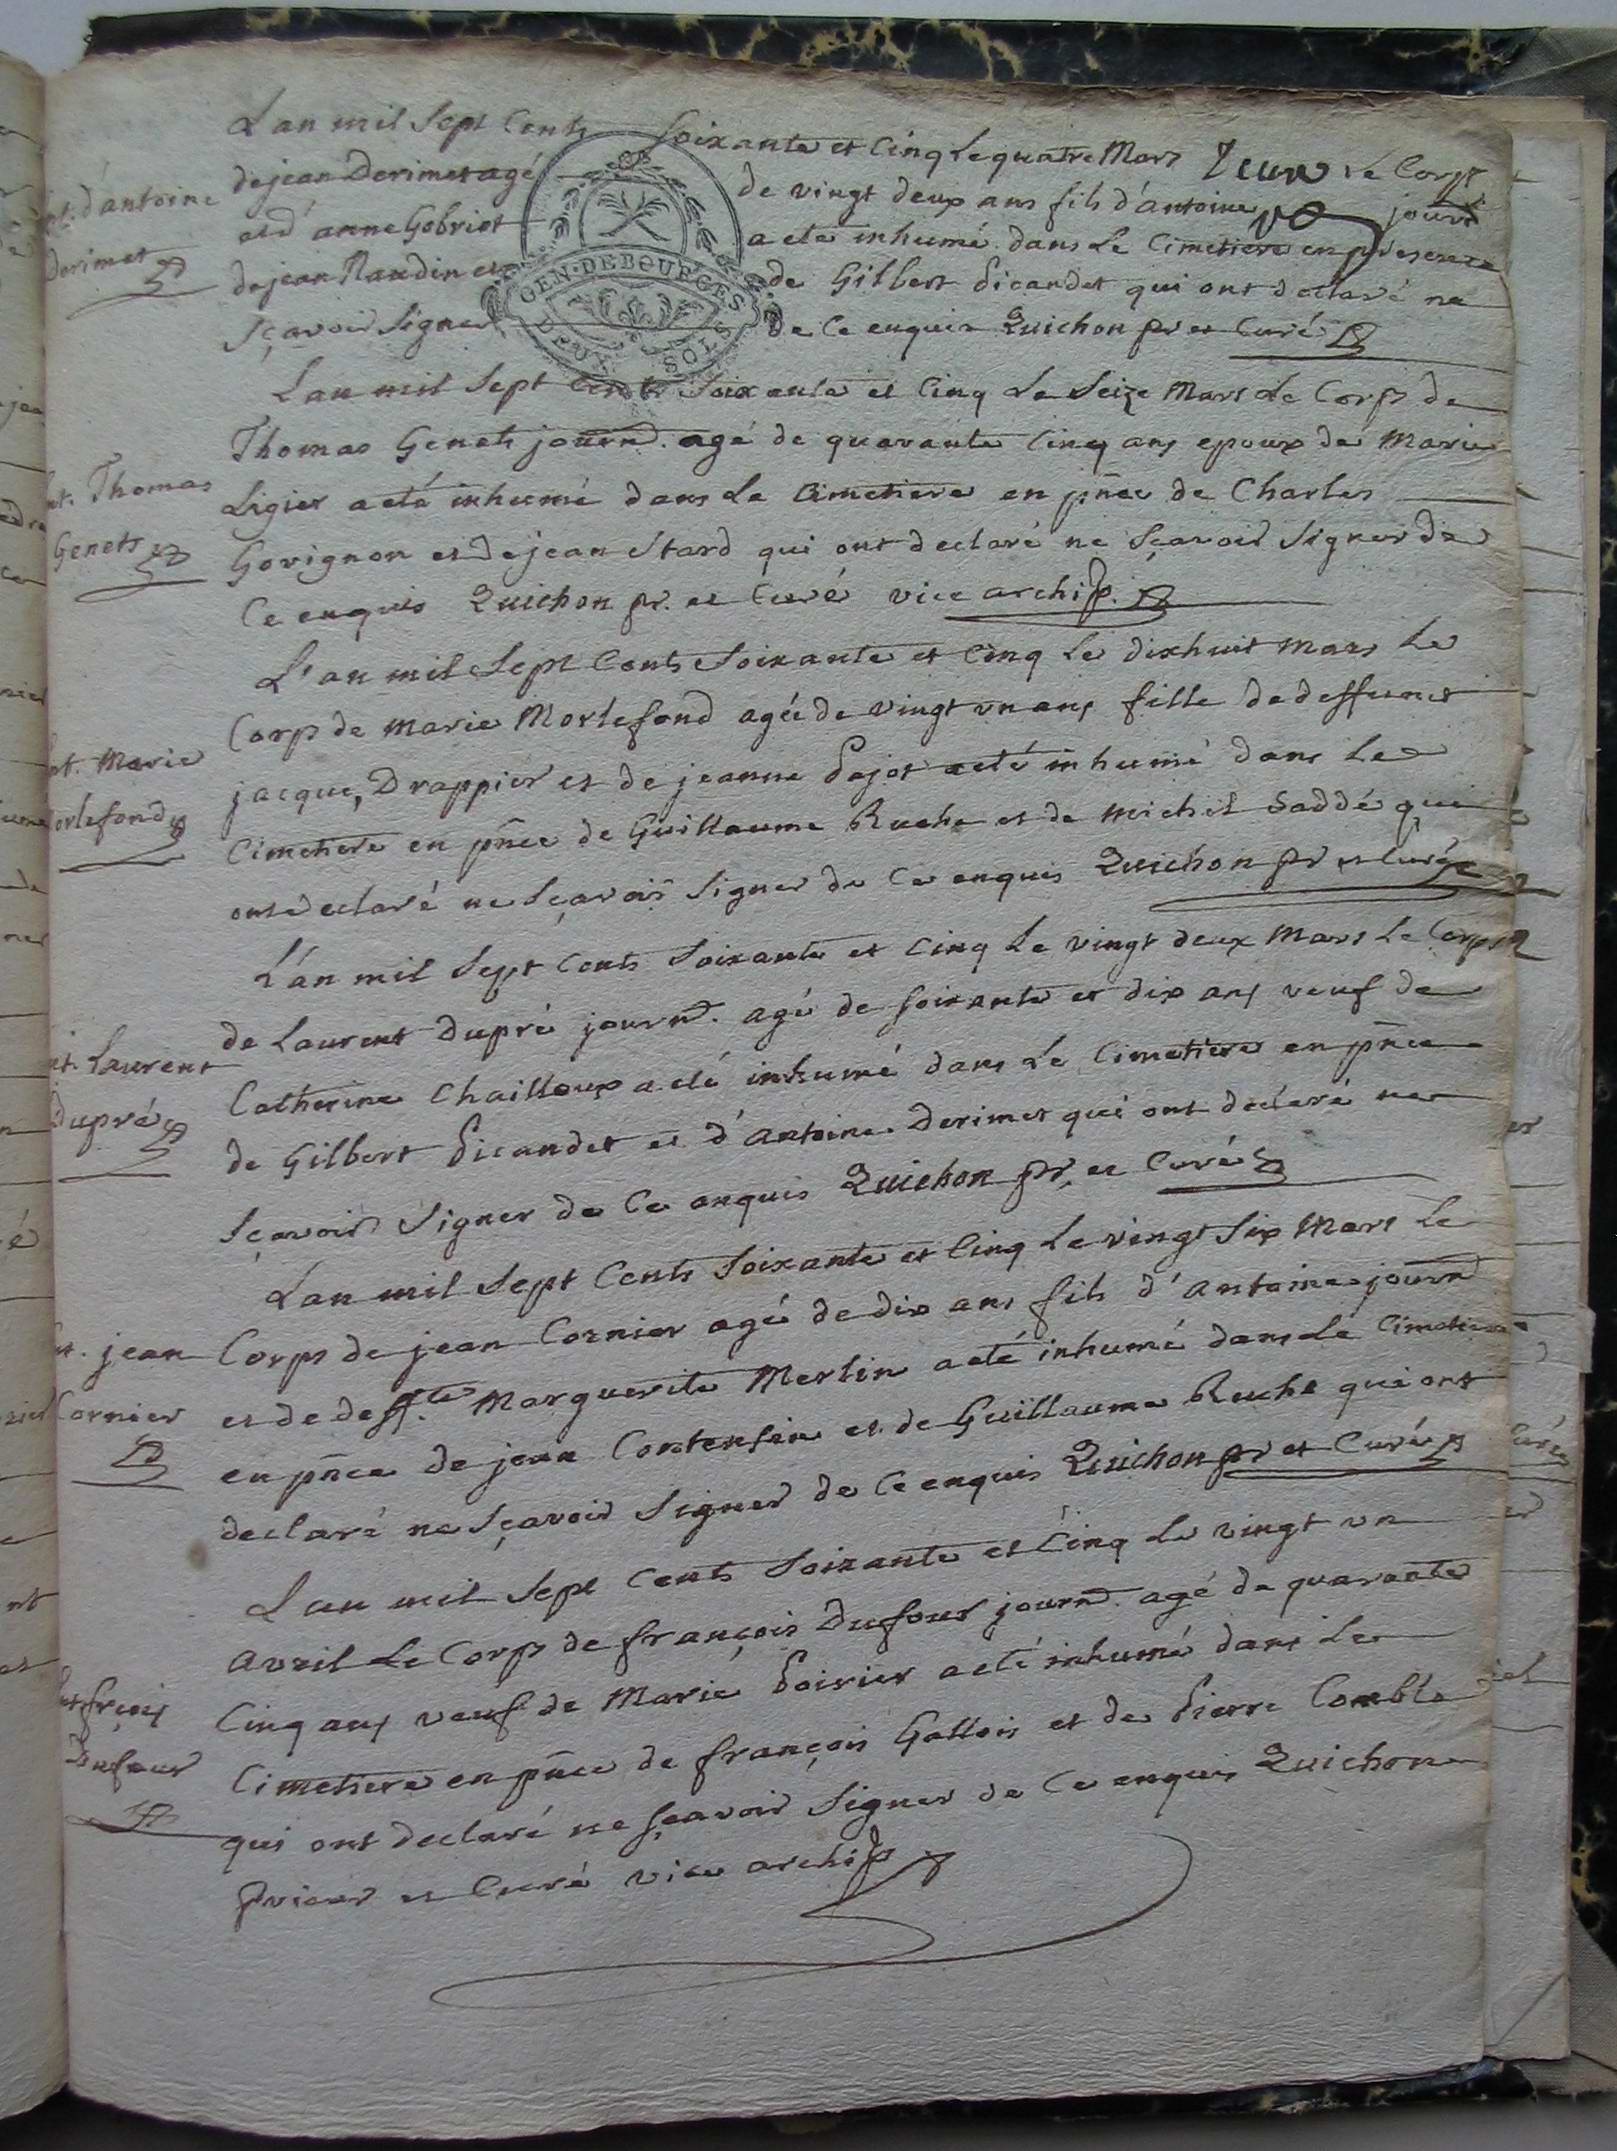 L'an mil Sept Cents Soixante et Cinq Le quatre Mars Le Corps
de jean Derimet agé de vingt deux ans fils d'antoine journ
et d'anne Gobriot a eté inhumé dans Le Cimetiere en presence
de jean Raudin et de Gilbert Picandet qui ont declaré ne
Sçavoir Signer de Ce enquis Quichon pr et Curé
d'antoine
Derimet
GEN·DE BOURGES
DEUX SOLS
L'an mil Sept Cents Soixante et Cinq Le Seize Mars Le Corps de
Thomas Genets journ. agé de quarante Cinq ans epoux de Marie
Ligier a eté inhumé dans Le Cimetiere en pñce de Charles
Govignon et de jean Stard qui ont declaré ne Sçavoir Signer de
Ce enquis Quichon pr. et Curé vice archip.
Thomas
Genets
L'an mil Sept Cents Soixante et Cinq Le dixhuit Mars Le
Corps de Marie Morlefond agée de vingt un ans fille de deffunct
jacque, Drappier et de jeanne Pajot a eté inhumé dans Le
Cimetiere en pñce de Guillaume Ruche et de Michel Saddé qui
ont declaré ne Sçavoir Signer de Ce enquis Quichon pr et Curé
Marie
orlefond
L'an mil Sept Cents Soixante et Cinq Le vingt deux Mars Le Corps
de Laurent Dupré journ. agé de Soixante et dix ans veuf de
Catherine Chailloux a eté inhumé dans Le Cimetiere en pñce
de Gilbert Picandet et d'antoine Derimet qui ont declaré ne
Sçavoir Signer de Ce enquis Quichon pr. et Curé
Laurent
Dupré
L'an mil Sept Cents Soixante et Cinq Le vingt Six Mars Le
Corps de jean Cornier agé de dix ans fils d'antoine journ
et de deff.te Marguerite Merlin a eté inhumé dans Le Cimetiere
en pñce de jean Contensin et de Guillaume Ruche qui ont
declaré ne Sçavoir Signer de Ce enquis Quichon pr et Curé
jean
Cornier
L'an mil Sept Cents Soixante et Cinq Le vingt un
avril Le Corps de françois Dufour journ. agé de quarante
Cinq ans veuf de Marie Poirier a eté inhumé dans Le
Cimetiere en pñce de françois Gallois et de Pierre Comble
qui ont declaré ne Sçavoir Signer de Ce enquis Quichon
prieur et Curé vice archip
frçois
Dufour